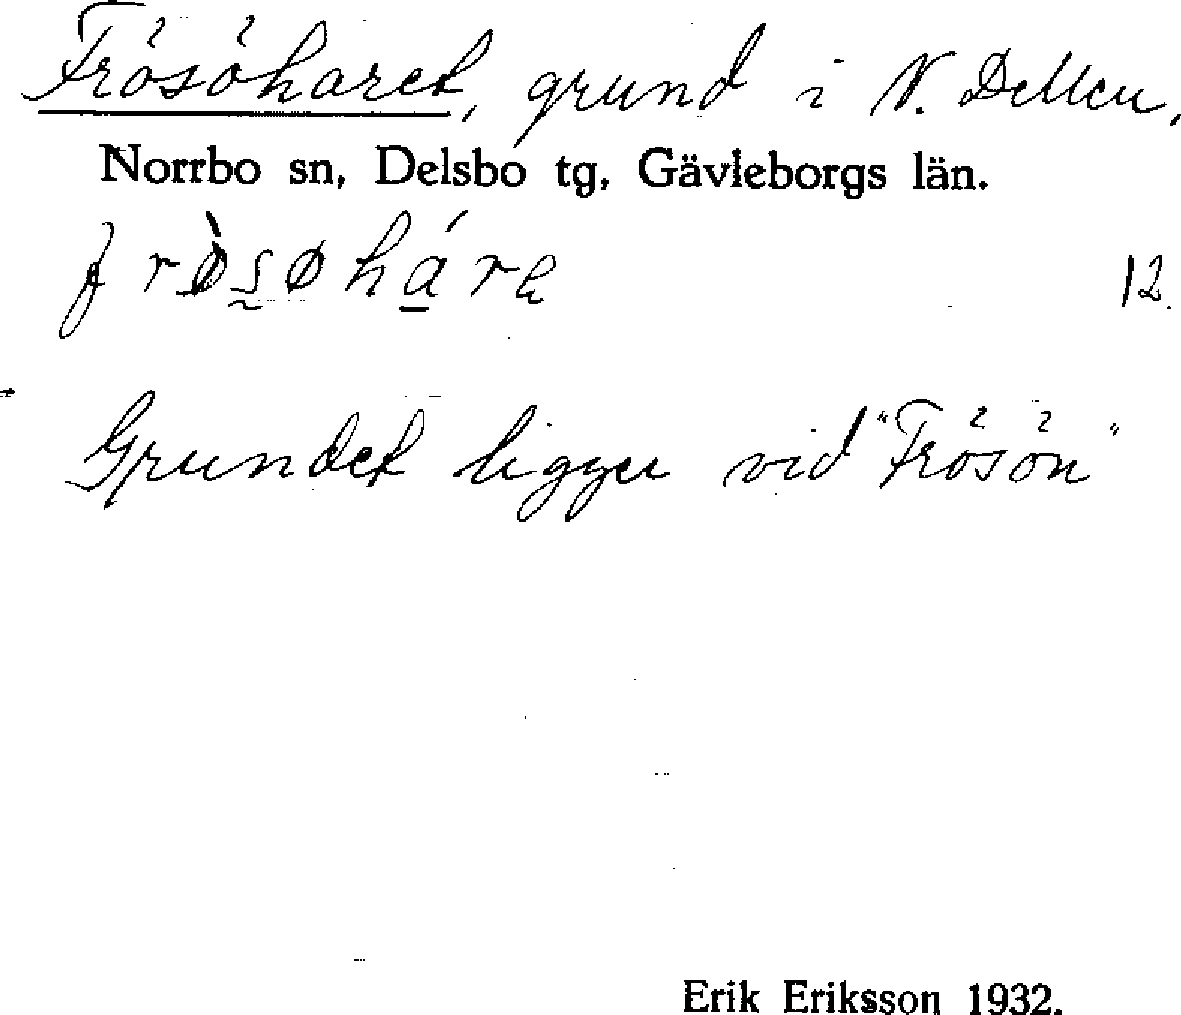 Frösöharet, grund i N. Dellen,
Norrbo sn, Delsbo tg, Gävleborgs län.
frø̀søháre 12.
Grundet ligger vid "Frösön"
Erik Eriksson 1932.